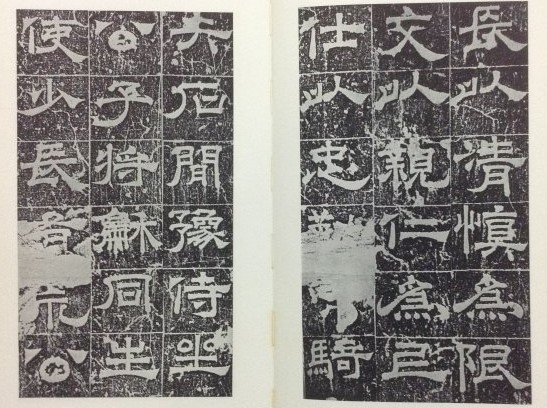 長以清慎爲限
文以親仁爲
仕以忠騎
間豫侍坐
公子將龢同生
使少長公